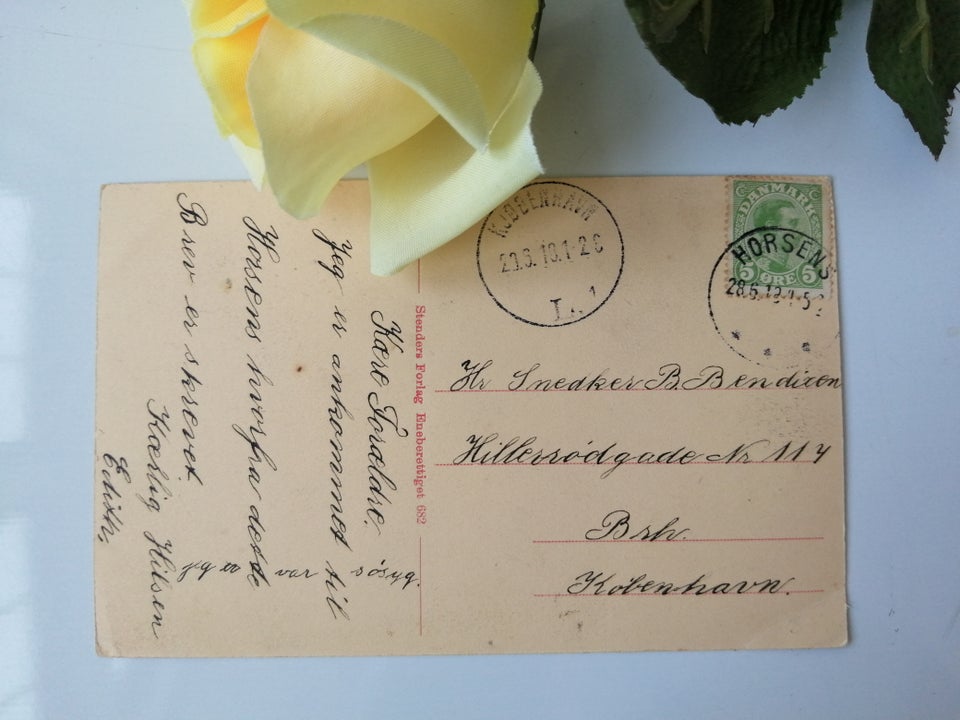 Kære Forældre.
Jeg er ankommet til
Horsens hvorfra dette
Brev er skrevet
Kærlig Hilsen
Edith.
jeg er var søsyg.
Stenders Forlag Eneberettiget 682
KJØBENHAVN
1-2 E
L. 1
DANMARK
5 ØRE 5
HORSENS
28.6.
Hr Snedker B. Bendixen
Hillerødgade Nr 114
Brh.
København.